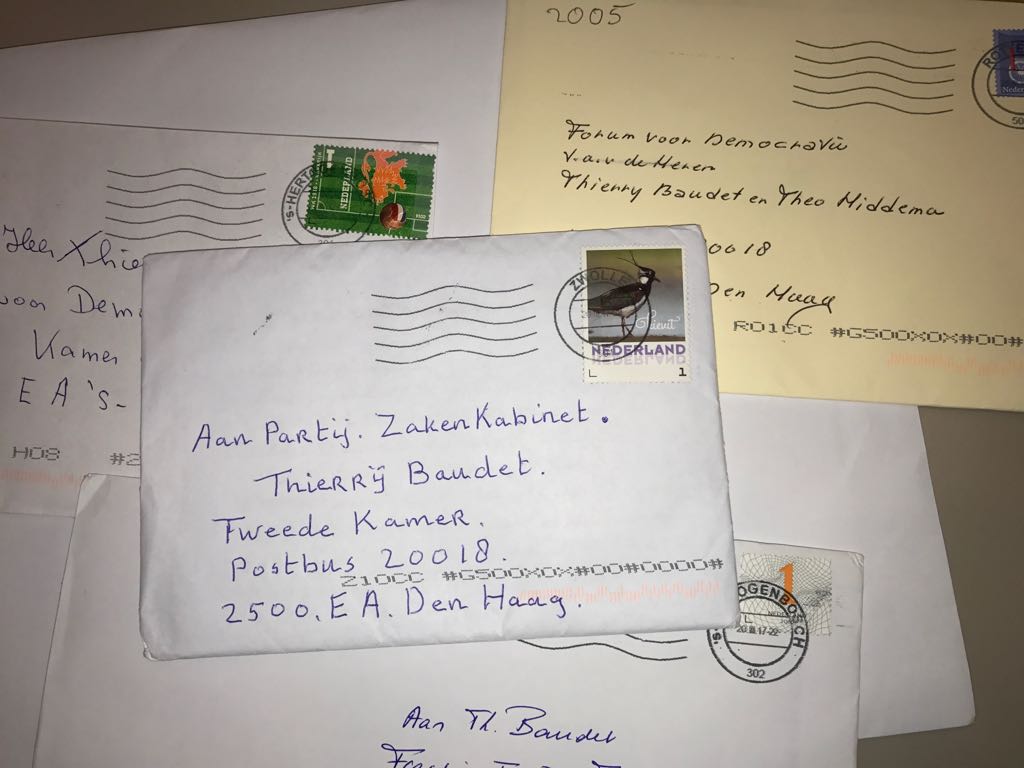 2005
Forum voor Democratie
t.a.v. de Heren
Thierry Baudet en Theo Hiddema
0018
Den Haag
R01CC #G500X0X#00#
's-HERTO
NEDERLAND
1
Heer Thie
voor Dem
Kamer
E A 's-
H08 #2
ZWOLLE
Kievit
NEDERLAND
1
Aan Partij. ZakenKabinet.
Thierrÿ Baudet.
Tweede Kamer.
Postbus 20018.
Z10CC #G500X0X#00#0000#
2500. E A. Den Haag.
1
's-
OGENBOSCH
20.III.17-22
302
Aan Th. Baudet